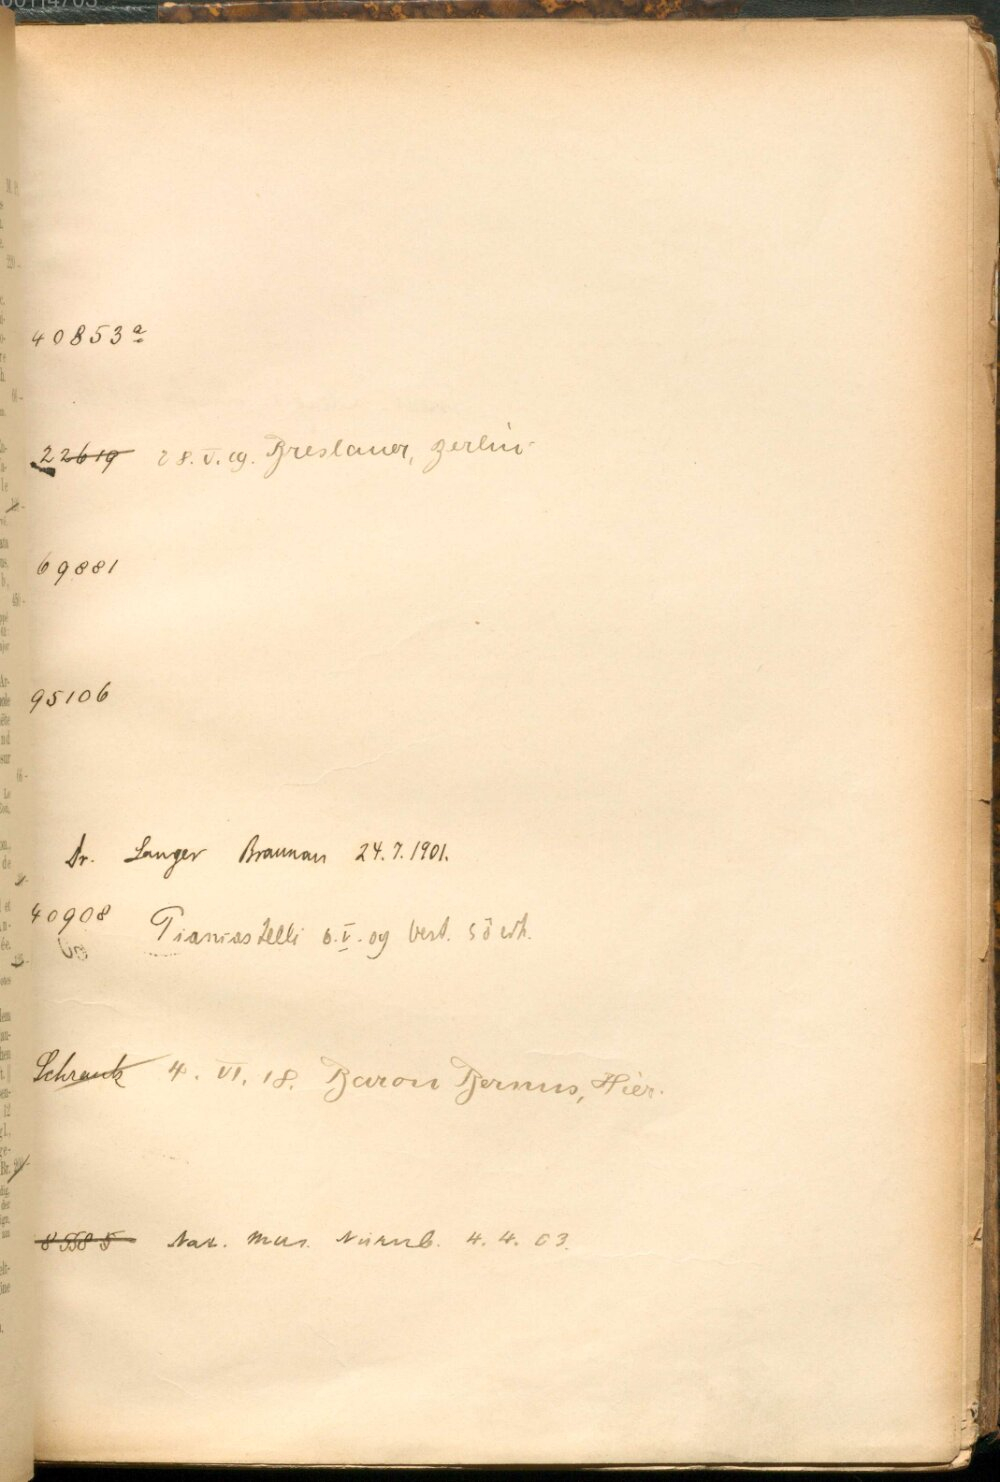 40853a
22619 28.V.09. Breslauer, Berlin
69881
95106
Dr. Langer Braunau 24.7.1901.
40908 6.V.09
Schrank 4. VI. 18. Baron Bernus, Hier.
Nat. Mus. Nürnb. 4. 4. 03.